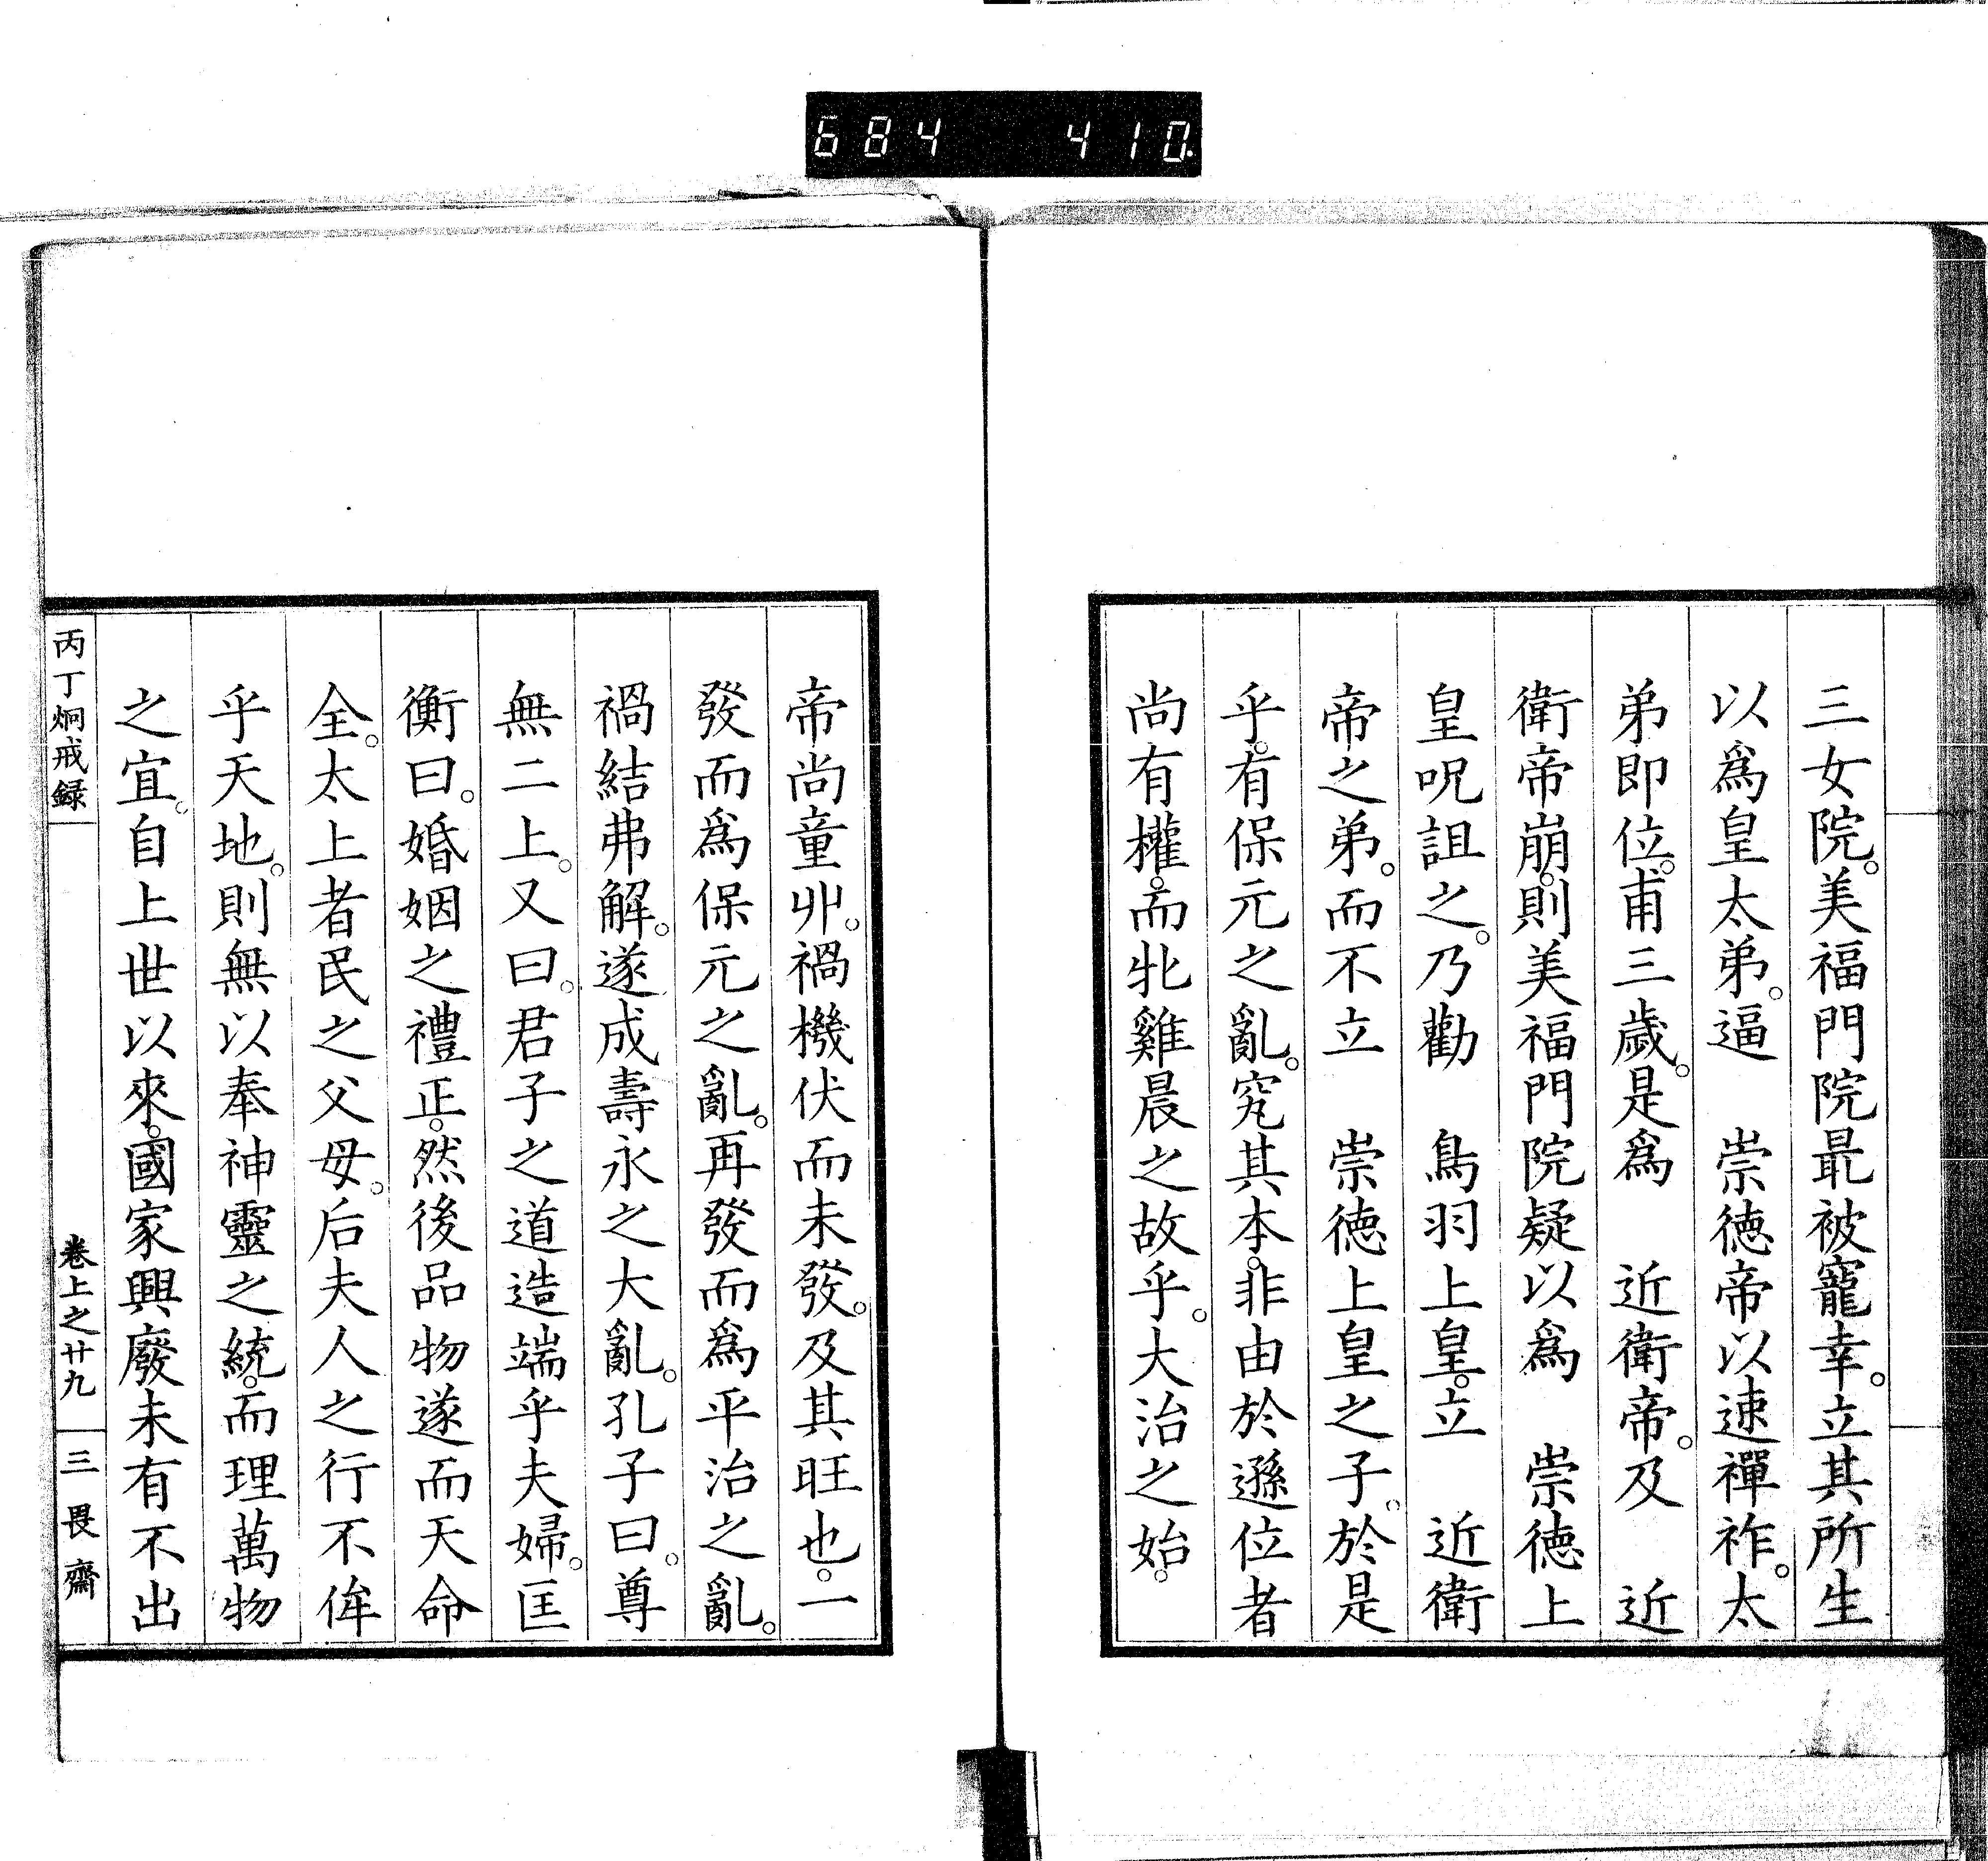 684 410
三女院。美福門院最被寵幸。立其所生
以爲皇太弟。逼　崇徳帝以速禪祚。太
弟即位。甫三歲。是爲　近衛帝。及　近
衛帝崩。則美福門院疑以爲　崇徳上
皇呪詛之。乃勸　鳥羽上皇。立　近衛
帝之弟。而不立　崇徳上皇之子。於是
乎。有保元之亂。究其本。非由於遜位者
尚有權。而牝雞晨之故乎。大治之始。
帝尚童丱。禍機伏而未發。及其旺也。一
發而爲保元之亂。再發而爲平治之亂。
禍結弗解。遂成壽永之大亂。孔子曰。尊
無二上。又曰。君子之道造端乎夫婦。匡
衡曰。婚姻之禮正。然後品物遂而天命
全。太上者民之父母。后夫人之行不侔
乎天地。則無以奉神靈之統。而理萬物
之宜。自上世以來。國家興廢未有不出
丙丁炯戒録　卷上之廿九　三畏齋